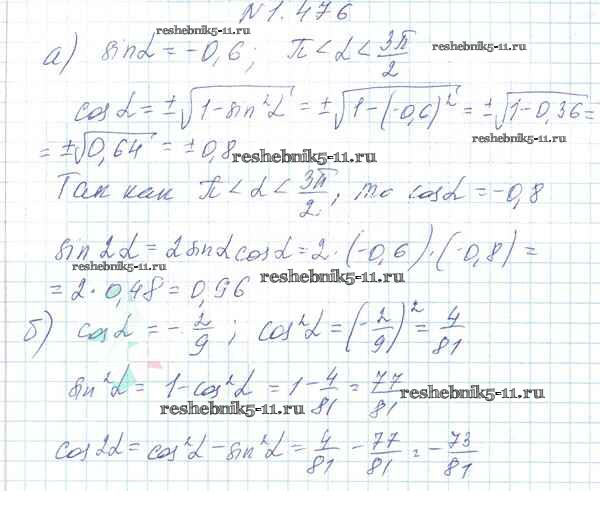 N 1.476
reshebnik5-11.ru
а) sinα = -0,6; π < α < 3π/2
reshebnik5-11.ru
cosα = ±√(1-sin²α) = ±√(1-(-0,6)²) = ±√(1-0,36) =
reshebnik5-11.ru
= ±√0,64 = ±0,8
reshebnik5-11.ru
Так как π < α < 3π/2, то cosα = -0,8
sin2α = 2sinα cosα = 2·(-0,6)·(-0,8) =
reshebnik5-11.ru
reshebnik5-11.ru
= 2·0,48 = 0,96
б) cosα = -2/9; cos²α = (-2/9)² = 4/81
sin²α = 1-cos²α = 1-4/81 = 77/81
reshebnik5-11.ru
reshebnik5-11.ru
cos2α = cos²α - sin²α = 4/81 - 77/81 = -73/81